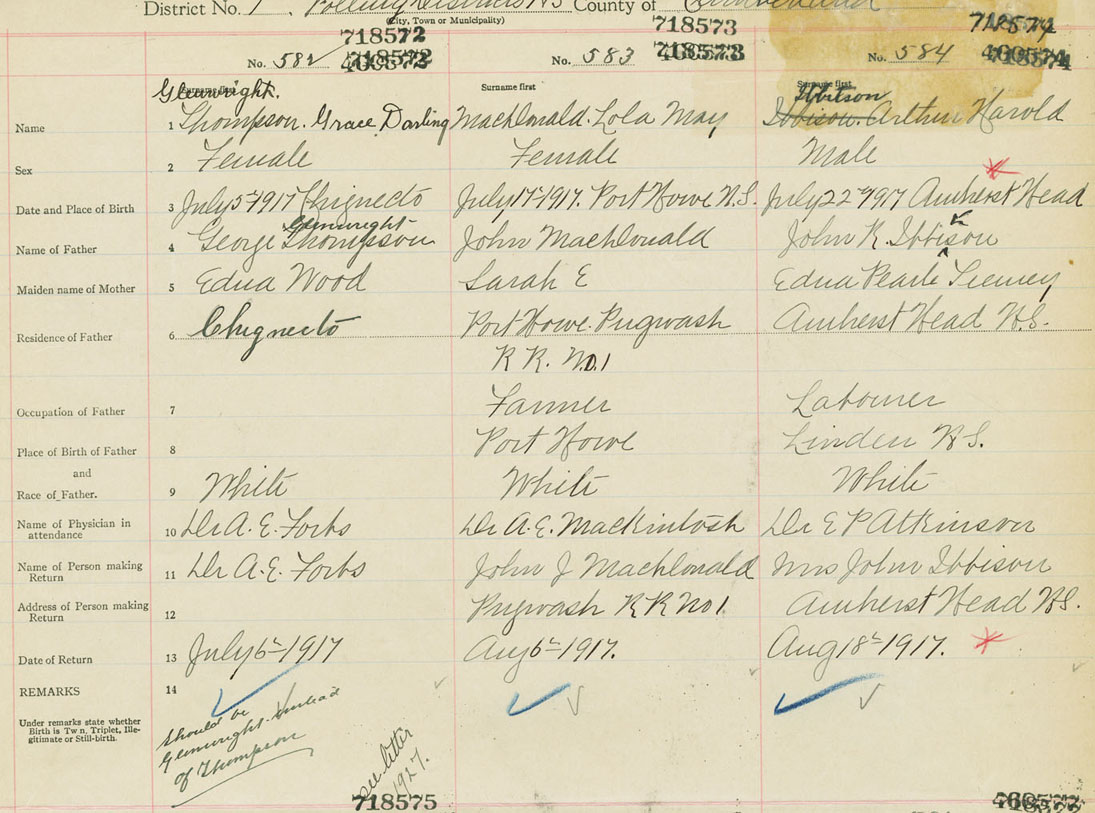 District No. 1, Polling District No 5 County of Cumberland
(City, Town or Municipality)
718572 718573 718574
No. 582 No. 583 718573 No. 584
Glenwright. Surname first Surname first Surname first Ibbitson
Name 1 Thompson. Grace Darling MacDonald. Lola May Ibbison. Arthur Harold
Sex 2 Female Female Male
Date and Place of Birth 3 July 5th 1917 Chignecto July 17th 1917. Port Howe N.S. July 22nd 1917 Amherst Head
Glenwright t
Name of Father 4 George Thompson John MacDonald John R. Ibbison
Maiden name of Mother 5 Edna Wood Sarah E Edna Pearle
Residence of Father 6 Chignecto Port Howe. Pugwash Amherst Head N.S.
R R. No. 1
Occupation of Father 7 Farmer Labourer
Place of Birth of Father 8 Port Howe Linden N.S.
and
Race of Father. 9 White White White
Name of Physician in attendance 10 Dr A. E. Forbs Dr A. E. Mackintosh Dr E P Atkinson
Name of Person making Return 11 Dr A. E. Forbs John J MacDonald Mrs John Ibbison
Address of Person making Return 12 Pugwash R R No 1 Amherst Head N.S.
Date of Return 13 July 6th 1917 Aug 6th 1917. Aug 18th 1917.
REMARKS 14
Under remarks state whether Birth is Twn, Triplet, Ille-
gitimate or Still-birth.
Should be
Glenwright instead
of Thompson
see letter
1927.
718575